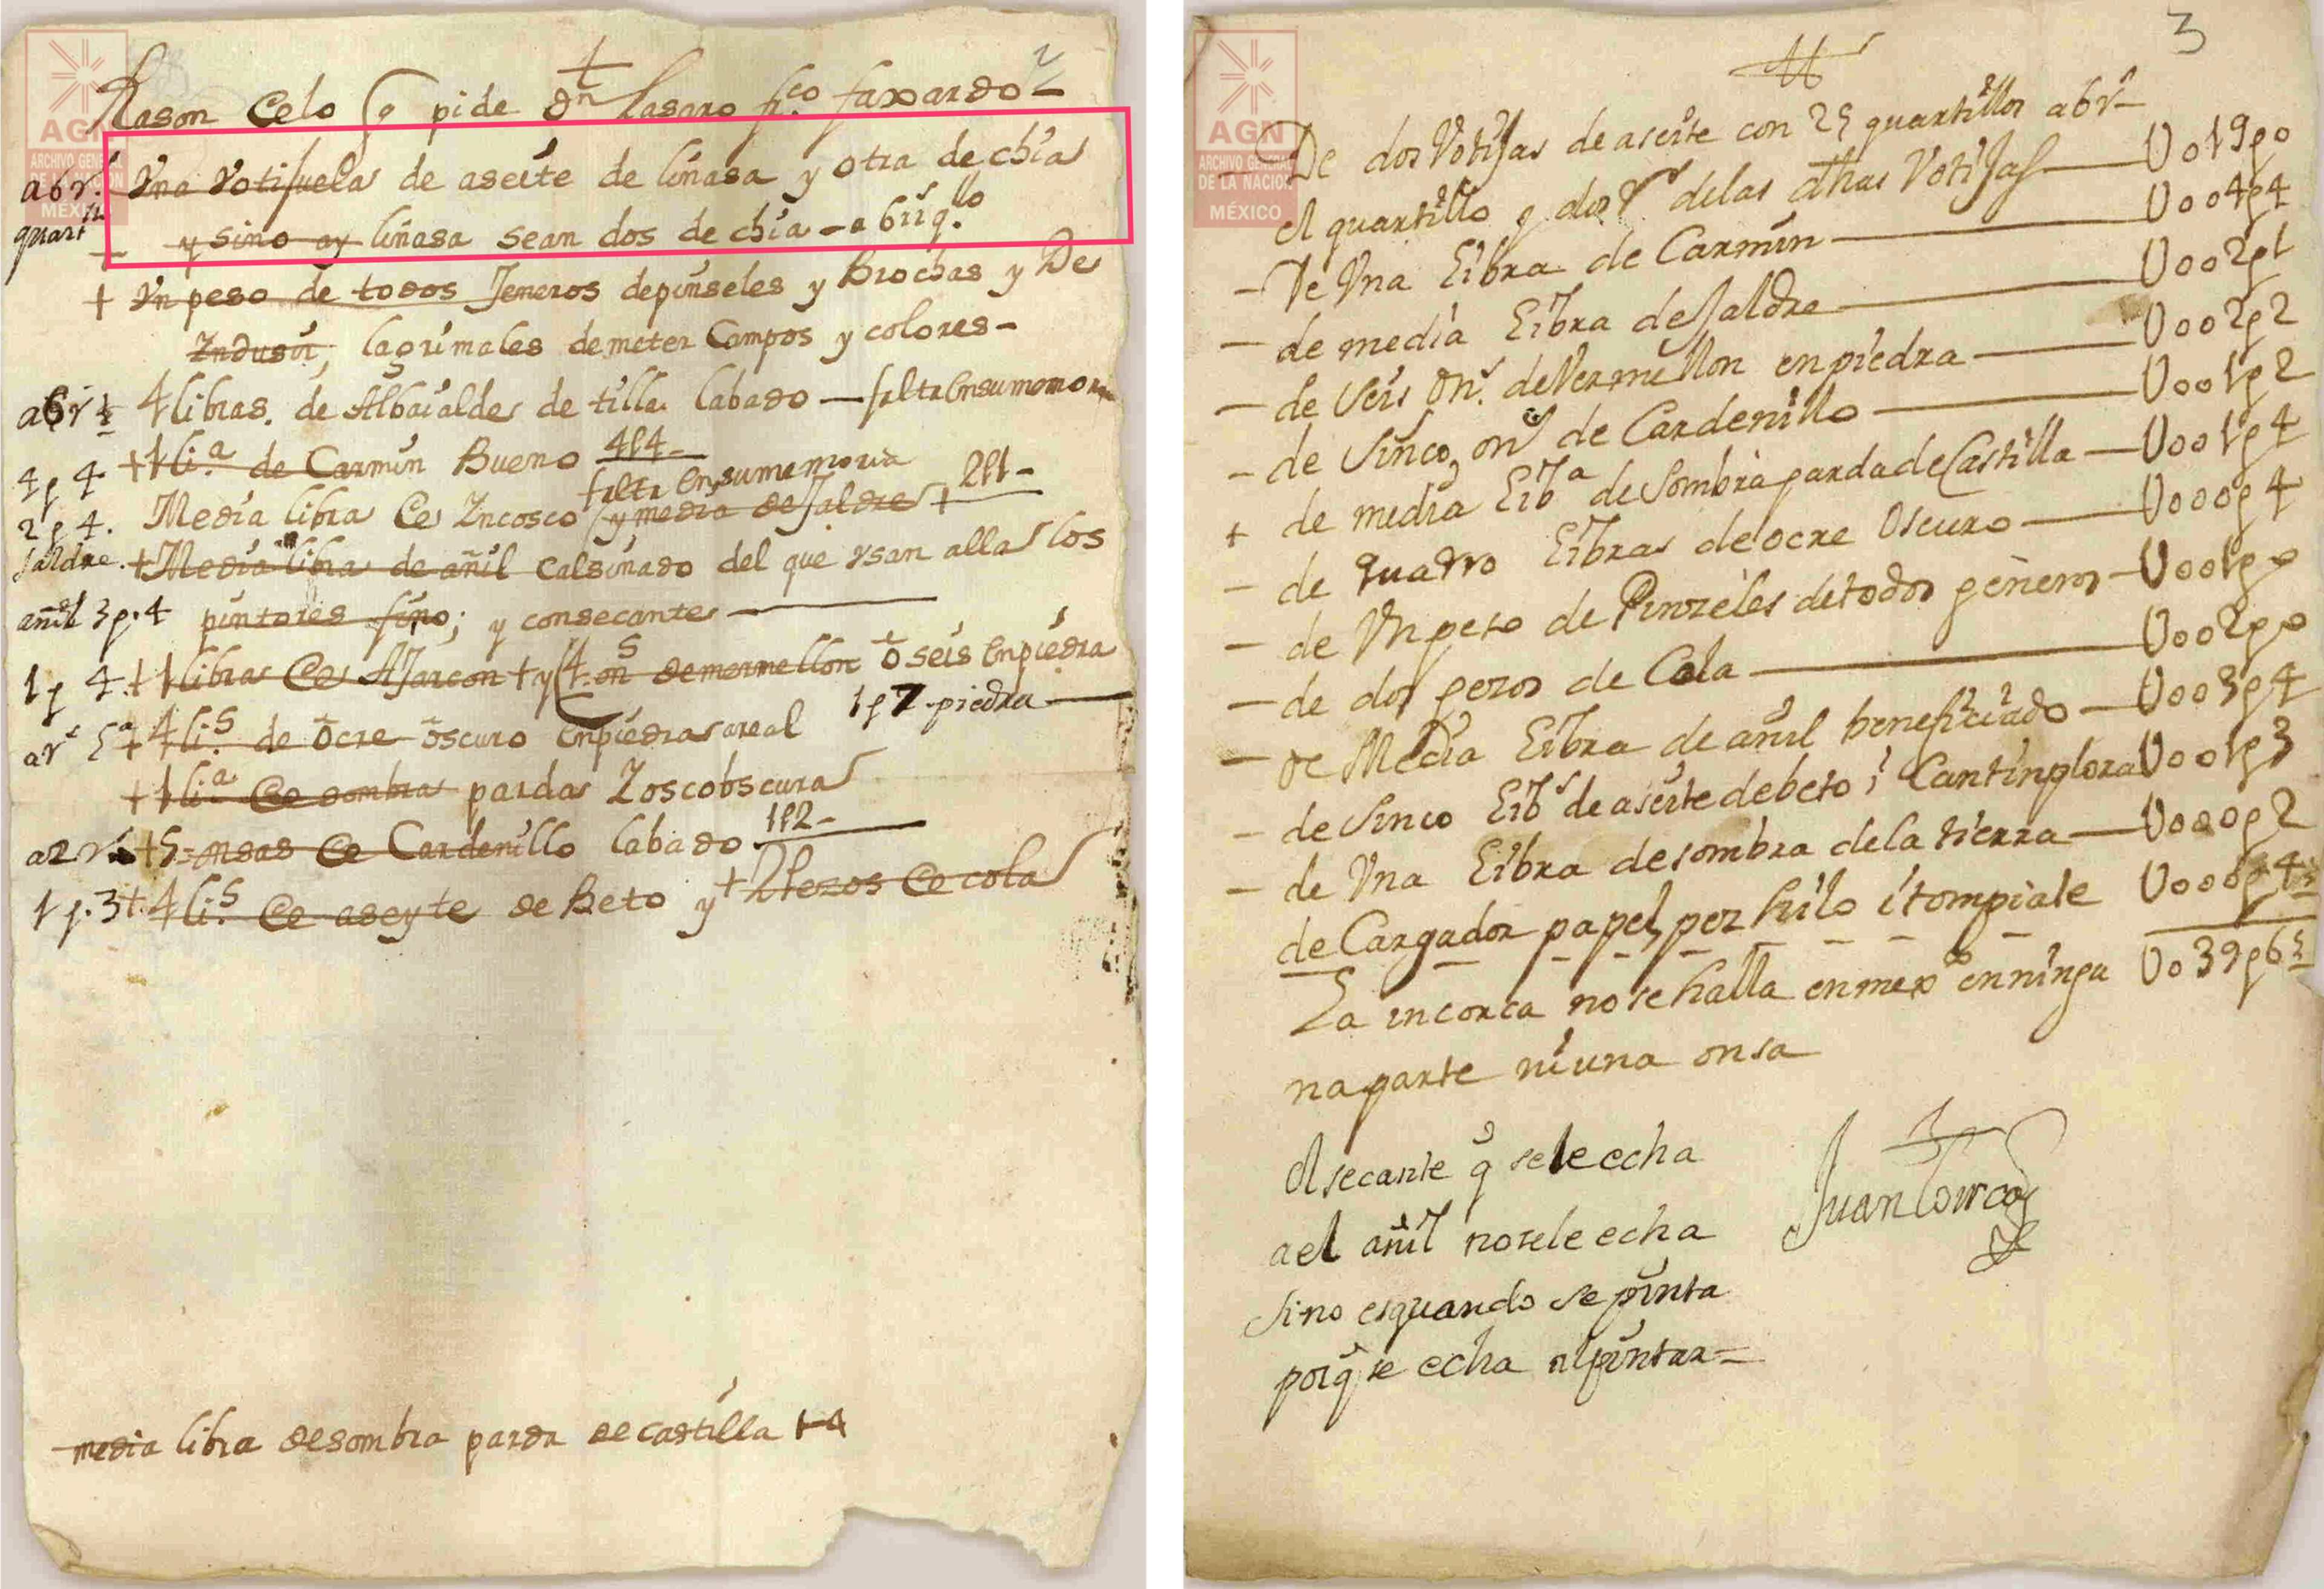 2
Rason Celo q pide Dn Lasaro fco faxardo
abr. Una Votifuela de aseite de linasa y otra de chia
quartº y sino ay linasa sean dos de chia - a 6 rr q.llo
+ Un peso de todos Jeneros de pinseles y Brochas y De
Lagrimales de meter Campos y colores -
a 6 r 4 libras de Albaialde de tilla labado — falta en su memoria
4 p 4 + 1 li.a de Carmin Bueno 4p4 -
falta en su memoria
2 p 4. Media libra Ce Incosco y media de Jaldre + 2p1 -
Jaldre. + Media libra de añil Calsinado del que usan alla los
añil 3 p. 4 pintores fino; y consecante
1 p 4. + 1 libra Ce Ajarcon + y 4. on.s de mermellon o seis en piedra
+ 4 li.s de ocre oscuro en piedra a real 1 p 7 piedra
+ 1 li.a Ce sombra parda Zoscobscura
a 2 r + 5 = onsas Ce Cardenillo labado 1p2 -
1 p. 3 + 4 li.s Ce aseyte de Beto y + 2 pezos Ce cola
media libra de sombra parda de castilla + 4
AGN
ARCHIVO GENERAL
DE LA NACIÓN
MÉXICO
3
De dos Votijas de aseite con 25 quartillos a 6 r
el quartillo y dos r delas dhas Votijas U019p0
- De Una Libra de Carmin U004p4
- de media Libra de Jaldre U002p1
- de Seis On.s de Vermellon en piedra U002p2
- de Sinco on.s de Cardenillo U001p2
+ de media Lib.a de Sombra parda de Castilla U001p4
- de quatro Libras de ocre Oscuro U000p4
- de Un peso de Pinzeles de todos generos U001p0
- de dos pezos de Cola U002p0
- de Media Libra de añil beneficiado U003p4
- de Sinco Lib.s de aseite de beto i Cantinplora U001p3
- de Una Libra de sombra de la tierra U000p2
de Cargador papel, pez hilo i tompiate U000p4
U039p6
La incorca no se halla en mex.co en ningu
na parte ni una onsa
el secante q se le echa
a el añil no sele echa
sino es quando se pinta
porq se echa al pintar -
Juan Correa
AGN
ARCHIVO GENERAL
DE LA NACIÓN
MÉXICO